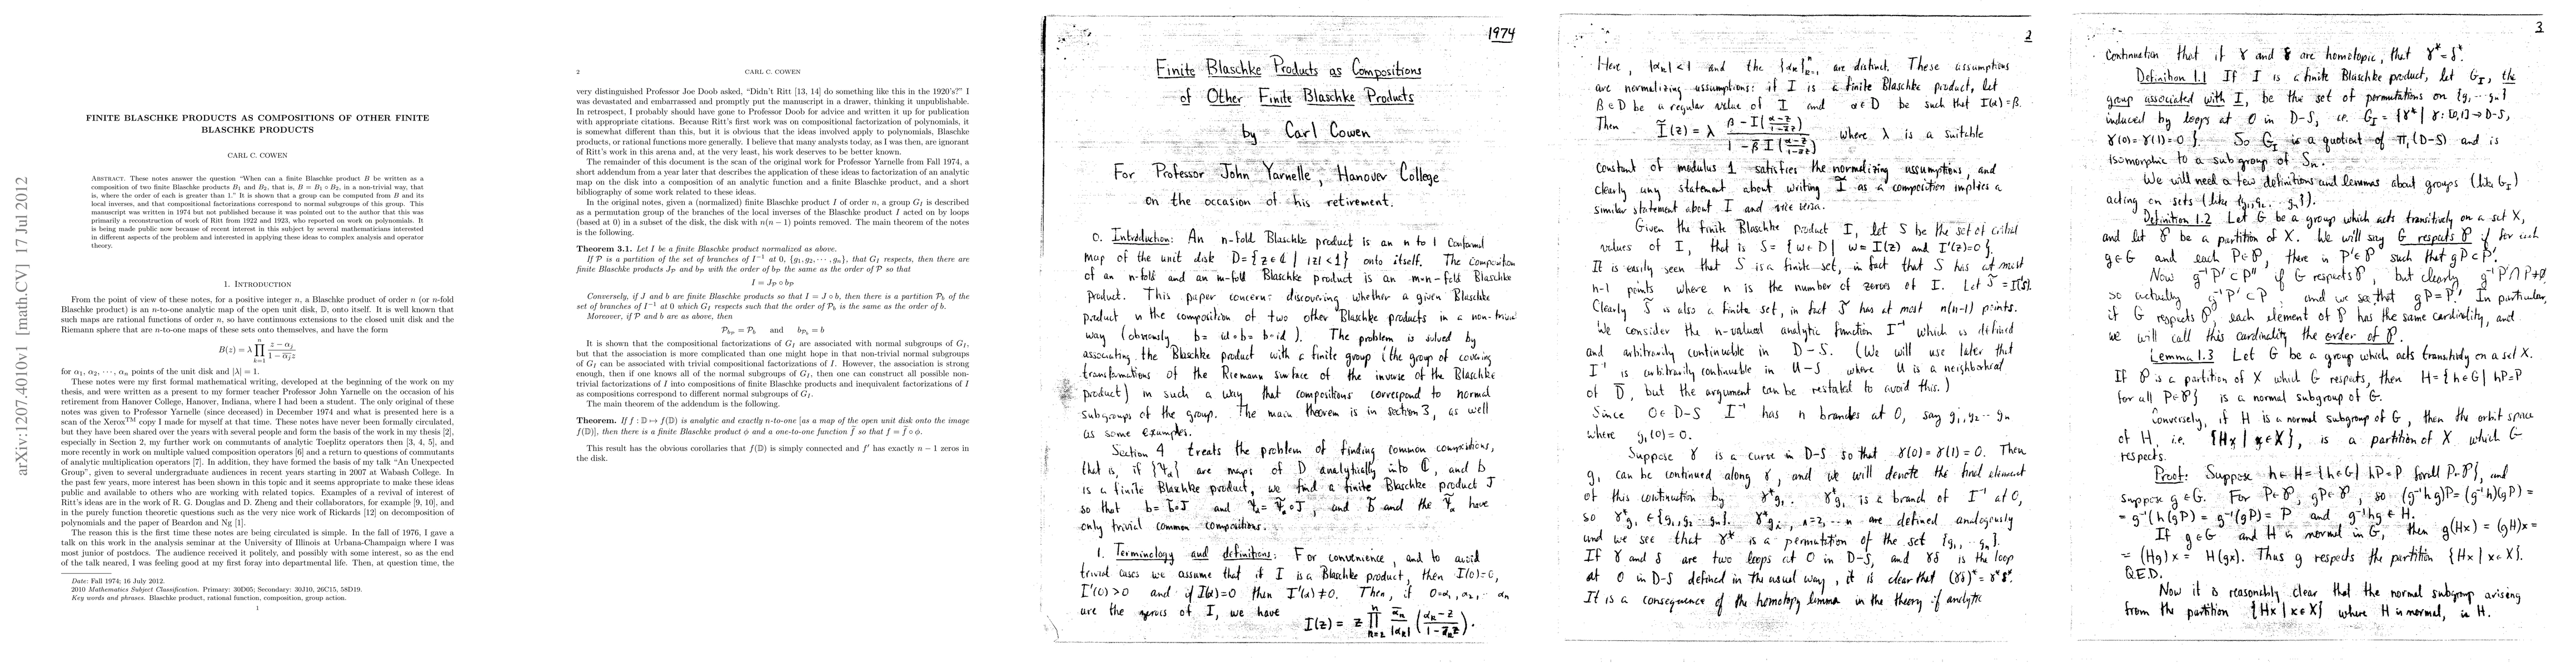 arXiv:1207.4010v1 [math.CV] 17 Jul 2012
FINITE BLASCHKE PRODUCTS AS COMPOSITIONS OF OTHER FINITE
BLASCHKE PRODUCTS
CARL C. COWEN
ABSTRACT. These notes answer the question "When can a finite Blaschke product B be written as a
composition of two finite Blaschke products B₁ and B₂, that is, B = B₁ ∘ B₂, in a non-trivial way, that
is, where the order of each is greater than 1." It is shown that a group can be computed from B and its
local inverses, and that compositional factorizations correspond to normal subgroups of this group. This
manuscript was written in 1974 but not published because it was pointed out to the author that this was
primarily a reconstruction of work of Ritt from 1922 and 1923, who reported on work on polynomials. It
is being made public now because of recent interest in this subject by several mathematicians interested
in different aspects of the problem and interested in applying these ideas to complex analysis and operator
theory.
1. INTRODUCTION
From the point of view of these notes, for a positive integer n, a Blaschke product of order n (or n-fold
Blaschke product) is an n-to-one analytic map of the open unit disk, 𝔻, onto itself. It is well known that
such maps are rational functions of order n, so have continuous extensions to the closed unit disk and the
Riemann sphere that are n-to-one maps of these sets onto themselves, and have the form
B(z) = λ ∏_{k=1}^{n} (z − α_j)/(1 − \overline{α_j}z)
for α₁, α₂, ···, αₙ points of the unit disk and |λ| = 1.
These notes were my first formal mathematical writing, developed at the beginning of the work on my
thesis, and were written as a present to my former teacher Professor John Yarnelle on the occasion of his
retirement from Hanover College, Hanover, Indiana, where I had been a student. The only original of these
notes was given to Professor Yarnelle (since deceased) in December 1974 and what is presented here is a
scan of the Xerox™ copy I made for myself at that time. These notes have never been formally circulated,
but they have been shared over the years with several people and form the basis of the work in my thesis [2],
especially in Section 2, my further work on commutants of analytic Toeplitz operators then [3, 4, 5], and
more recently in work on multiple valued composition operators [6] and a return to questions of commutants
of analytic multiplication operators [7]. In addition, they have formed the basis of my talk "An Unexpected
Group", given to several undergraduate audiences in recent years starting in 2007 at Wabash College. In
the past few years, more interest has been shown in this topic and it seems appropriate to make these ideas
public and available to others who are working with related topics. Examples of a revival of interest of
Ritt's ideas are in the work of R. G. Douglas and D. Zheng and their collaborators, for example [9, 10], and
in the purely function theoretic questions such as the very nice work of Rickards [12] on decomposition of
polynomials and the paper of Beardon and Ng [1].
The reason this is the first time these notes are being circulated is simple. In the fall of 1976, I gave a
talk on this work in the analysis seminar at the University of Illinois at Urbana-Champaign where I was
most junior of postdocs. The audience received it politely, and possibly with some interest, so as the end
of the talk neared, I was feeling good at my first foray into departmental life. Then, at question time, the
Date: Fall 1974; 16 July 2012.
2010 Mathematics Subject Classification. Primary: 30D05; Secondary: 30J10, 26C15, 58D19.
Key words and phrases. Blaschke product, rational function, composition, group action.
1
2 CARL C. COWEN
very distinguished Professor Joe Doob asked, "Didn't Ritt [13, 14] do something like this in the 1920's?" I
was devastated and embarrassed and promptly put the manuscript in a drawer, thinking it unpublishable.
In retrospect, I probably should have gone to Professor Doob for advice and written it up for publication
with appropriate citations. Because Ritt's first work was on compositional factorization of polynomials, it
is somewhat different than this, but it is obvious that the ideas involved apply to polynomials, Blaschke
products, or rational functions more generally. I believe that many analysts today, as I was then, are ignorant
of Ritt's work in this arena and, at the very least, his work deserves to be better known.
The remainder of this document is the scan of the original work for Professor Yarnelle from Fall 1974, a
short addendum from a year later that describes the application of these ideas to factorization of an analytic
map on the disk into a composition of an analytic function and a finite Blaschke product, and a short
bibliography of some work related to these ideas.
In the original notes, given a (normalized) finite Blaschke product I of order n, a group G_I is described
as a permutation group of the branches of the local inverses of the Blaschke product I acted on by loops
(based at 0) in a subset of the disk, the disk with n(n − 1) points removed. The main theorem of the notes
is the following.
Theorem 3.1. Let I be a finite Blaschke product normalized as above.
If 𝒫 is a partition of the set of branches of I⁻¹ at 0, {g₁, g₂, ···, gₙ}, that G_I respects, then there are
finite Blaschke products J_𝒫 and b_𝒫 with the order of b_𝒫 the same as the order of 𝒫 so that
I = J_𝒫 ∘ b_𝒫
Conversely, if J and b are finite Blaschke products so that I = J ∘ b, then there is a partition 𝒫_b of the
set of branches of I⁻¹ at 0 which G_I respects such that the order of 𝒫_b is the same as the order of b.
Moreover, if 𝒫 and b are as above, then
𝒫_{b_𝒫} = 𝒫_b and b_{𝒫_b} = b
It is shown that the compositional factorizations of G_I are associated with normal subgroups of G_I,
but that the association is more complicated than one might hope in that non-trivial normal subgroups
of G_I can be associated with trivial compositional factorizations of I. However, the association is strong
enough, then if one knows all of the normal subgroups of G_I, then one can construct all possible non-
trivial factorizations of I into compositions of finite Blaschke products and inequivalent factorizations of I
as compositions correspond to different normal subgroups of G_I.
The main theorem of the addendum is the following.
Theorem. If f : 𝔻 ↦ f(𝔻) is analytic and exactly n-to-one [as a map of the open unit disk onto the image
f(𝔻)], then there is a finite Blaschke product φ and a one-to-one function f̃ so that f = f̃ ∘ φ.
This result has the obvious corollaries that f(𝔻) is simply connected and f′ has exactly n − 1 zeros in
the disk.
1974
Finite Blaschke Products as Compositions
of Other Finite Blaschke Products
by Carl Cowen
For Professor John Yarnelle, Hanover College
on the occasion of his retirement.
0. Introduction: An n-fold Blaschke product is an n to 1 conformal
map of the unit disk D={z∈ℂ | |z|<1} onto itself. The composition
of an n-fold and an m-fold Blaschke product is an m·n-fold Blaschke
product. This paper concerns discovering whether a given Blaschke
product is the composition of two other Blaschke products in a non-trivial
way (obviously b = id∘b = b∘id). The problem is solved by
associating the Blaschke product with a finite group (the group of covering
transformations of the Riemann surface of the inverse of the Blaschke
product) in such a way that compositions correspond to normal
subgroups of the group. The main theorem is in section 3, as well
as some examples.
Section 4 treats the problem of finding common compositions,
that is, if {Ψ_α} are maps of D analytically into ℂ, and b
is a finite Blaschke product, we find a finite Blaschke product J
so that b = b̃∘J and Ψ_α = Ψ̃_α∘J, and b̃ and the Ψ̃_α have
only trivial common compositions.
1. Terminology and definitions: For convenience, and to avoid
trivial cases we assume that if I is a Blaschke product, then I(0)=0,
I'(0)>0 and if I(α)=0 then I'(α)≠0. Then, if 0=α₁, α₂, ... αₙ
are the zeros of I, we have
I(z) = z ∏_{k=2}^{n} \overline{α_k}/|α_k| ((α_k − z)/(1 − \overline{α_k}z)).
2
Here, |α_k|<1 and the {α_k}ⁿ_{k=1} are distinct. These assumptions
are normalizing assumptions: if I is a finite Blaschke product, let
β∈D be a regular value of I and α∈D be such that I(α)=β.
Then Ĩ(z) = λ (β − I((α−z)/(1−ᾱz)))/(1 − β̄ I((α−z)/(1−ᾱz))) where λ is a suitable
constant of modulus 1 satisfies the normalizing assumptions, and
clearly any statement about writing Ĩ as a composition implies a
similar statement about I and vice versa.
Given the finite Blaschke product I, let S be the set of critical
values of I, that is S = {w∈D | w=I(z) and I'(z)=0}.
It is easily seen that S is a finite set, in fact that S has at most
n-1 points where n is the number of zeroes of I. Let S̃ = I⁻¹(S).
Clearly S̃ is also a finite set, in fact S̃ has at most n(n-1) points.
We consider the n-valued analytic function I⁻¹ which is defined
and arbitrarily continuable in D−S. (We will use later that
I⁻¹ is arbitrarily continuable in U−S where U is a neighborhood
of D̄, but the argument can be restated to avoid this.)
Since 0∈D−S I⁻¹ has n branches at 0, say g₁, g₂ ... gₙ
where g₁(0)=0.
Suppose γ is a curve in D−S so that γ(0)=γ(1)=0. Then
g₁ can be continued along γ, and we will denote the final element
of this continuation by γ*g₁. γ*g₁ is a branch of I⁻¹ at 0,
so γ*g₁ ∈{g₁,g₂ ... gₙ}. γ*g_i, i=2, ... n are defined analogously
and we see that γ* is a permutation of the set {g₁, ... gₙ}.
If γ and δ are two loops at 0 in D−S, and γδ is the loop
at 0 in D−S defined in the usual way, it is clear that (γδ)* = γ*δ*.
It is a consequence of the homotopy lemma in the theory of analytic
3
continuation that if γ and δ are homotopic, that γ*=δ*.
Definition 1.1 If I is a finite Blaschke product, let G_I, the
group associated with I, be the set of permutations on {g₁ ... gₙ}
induced by loops at 0 in D−S, i.e. G_I = {γ* | γ:[0,1]→D−S,
γ(0)=γ(1)=0}. So G_I is a quotient of π₁(D−S) and is
isomorphic to a subgroup of Sₙ.
We will need a few definitions and lemmas about groups (like G_I)
acting on sets (like {g₁,g₂ ... gₙ}).
Definition 1.2 Let G be a group which acts transitively on a set X,
and let 𝒫 be a partition of X. We will say G respects 𝒫 if for each
g∈G and each P∈𝒫, there is P'∈𝒫 such that gP⊂P'.
Now g⁻¹P'⊂P'' if G respects 𝒫, but clearly g⁻¹P'∩P≠∅
so actually g⁻¹P'⊂P, and we see that gP=P'. In particular,
if G respects 𝒫, each element of 𝒫 has the same cardinality, and
we will call this cardinality the order of 𝒫.
Lemma 1.3 Let G be a group which acts transitively on a set X.
If 𝒫 is a partition of X which G respects, then H={h∈G | hP=P
for all P∈𝒫} is a normal subgroup of G.
Conversely, if H is a normal subgroup of G, then the orbit space
of H, i.e. {Hx | x∈X}, is a partition of X which G
respects.
Proof: Suppose h∈H={h∈G | hP=P for all P∈𝒫}, and
suppose g∈G. For P∈𝒫, gP∈𝒫, so (g⁻¹hg)P=(g⁻¹h)(gP)=
=g⁻¹(h(gP))=g⁻¹(gP)=P and g⁻¹hg∈H.
If g∈G and H is normal in G, then g(Hx)=(gH)x=
=(Hg)x = H(gx). Thus g respects the partition {Hx | x∈X}.
Q.E.D.
Now it is reasonably clear that the normal subgroup arising
from the partition {Hx | x∈X} where H is normal, is H.